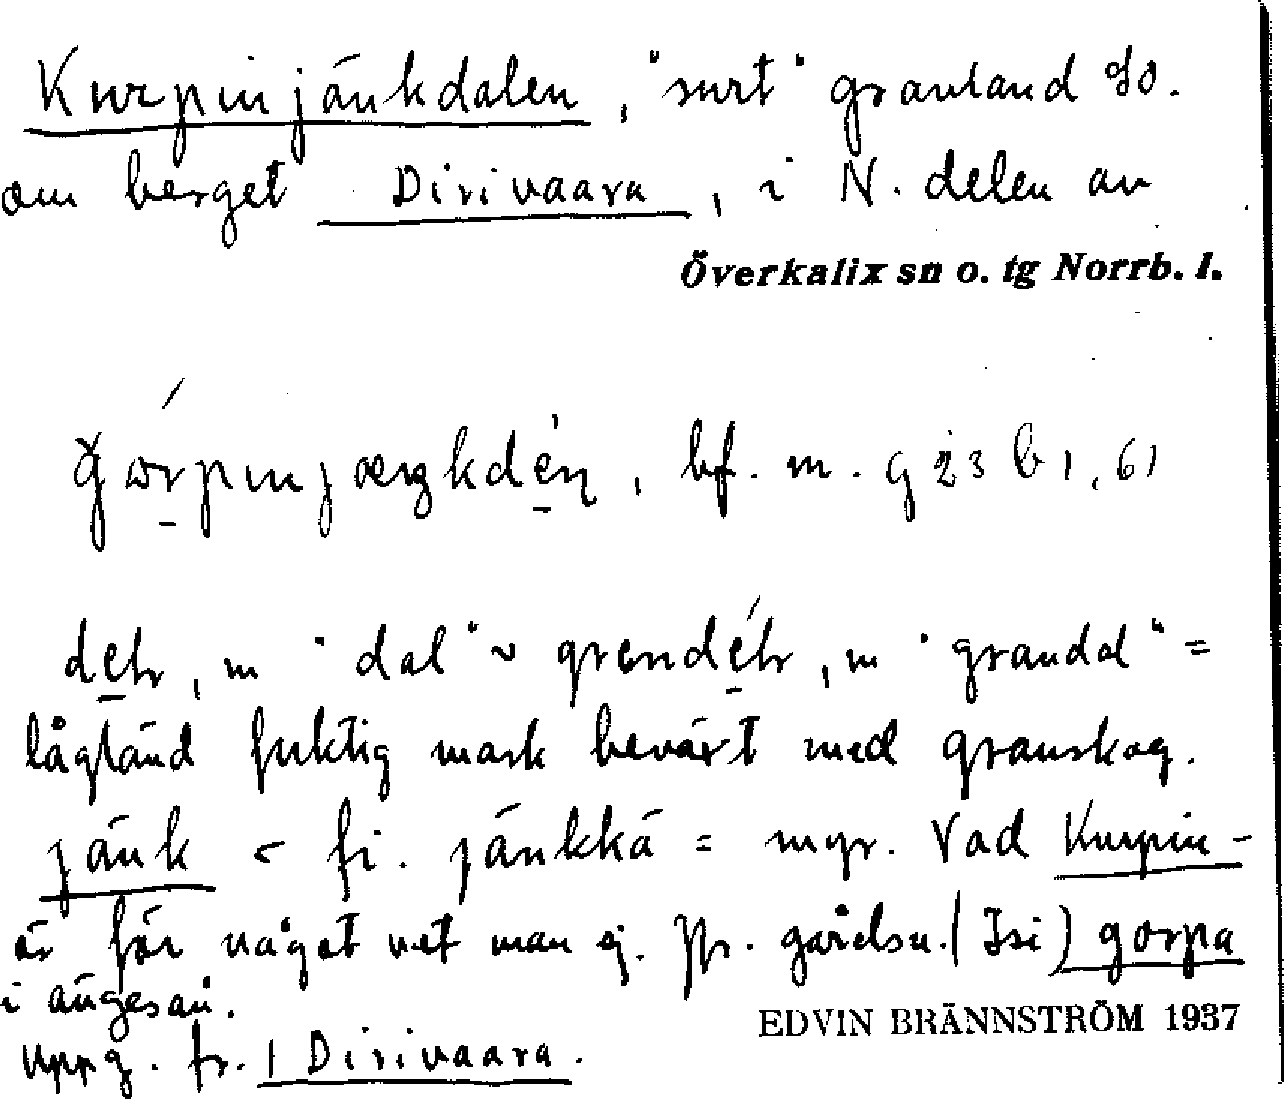 Kurpinjänkdalen, "surt" granland SO.
om berget Dirivaara, i N. delen av
Överkalix sn o. tg Norrb. l.
bf. m. g 23 b 1, 61
m "dal" ~ m "grandal" =
lågländ fuktig mark beväxt med granskog.
jänk < fi. jänkkä = myr. Vad Kurpin-
är för något vet man ej. Jfr. gårdsn. (Isi) gorpa
i ängesån.
Uppg. fr. 1 Dirivaara.
EDVIN BRÄNNSTRÖM 1937